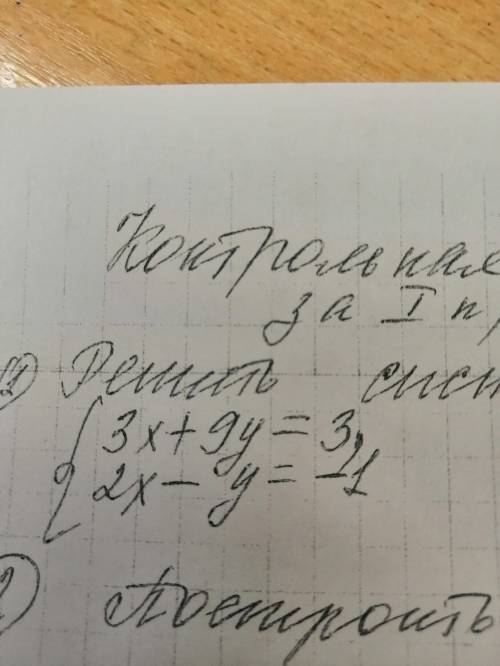 Контрольная
за I п
1) Решить сист
{ 3x + 9y = 3,
2x - y = -1
2) Построить